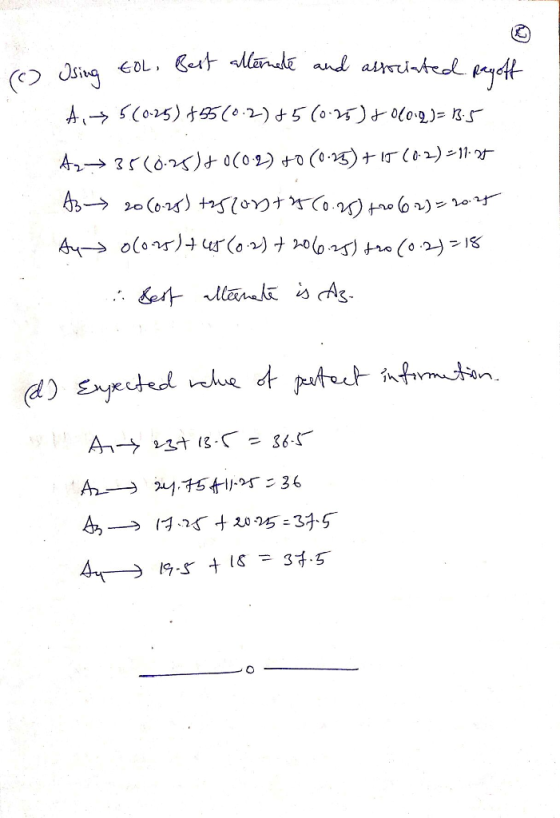 (c) Using EOL, Best alternate and associated payoff
A₁→ 5(0.25) + 55(0.2) + 5(0.25) + 0(0.2) = 13.5
A₂→ 35(0.25) + 0(0.2) + 0(0.25) + 15(0.2) = 11.25
A₃→ 20(0.25) + 25(0.2) + 25(0.25) + 20(0.2) = 20.25
A₄→ 0(0.25) + 45(0.2) + 20(0.25) + 20(0.2) = 18
∴ Best alternate is A₃.
(d) Expected value of perfect information.
A₁→ 23 + 13.5 = 36.5
A₂→ 24.75 + 11.25 = 36
A₃→ 17.25 + 20.25 = 37.5
A₄→ 19.5 + 18 = 37.5